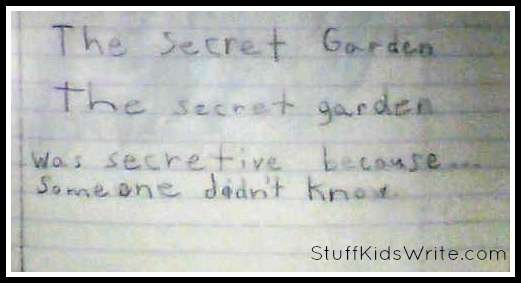 The Secret Garden
The secret garden
was secretive because...
Someone didn't know.
StuffKidsWrite.com